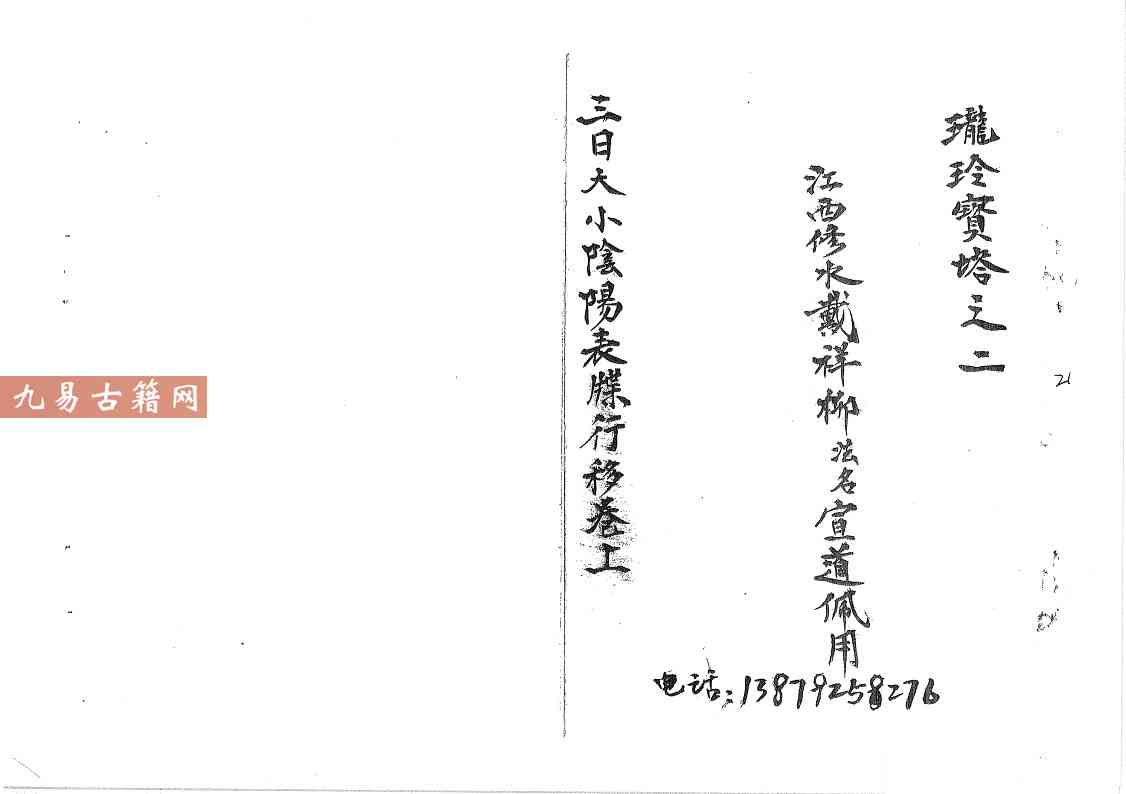 瓏玲寶塔之二
江西修水戴祥柳法名宣道佩用
电话:13879258276
三日大小陰陽表牒行移卷上
九易古籍网
21